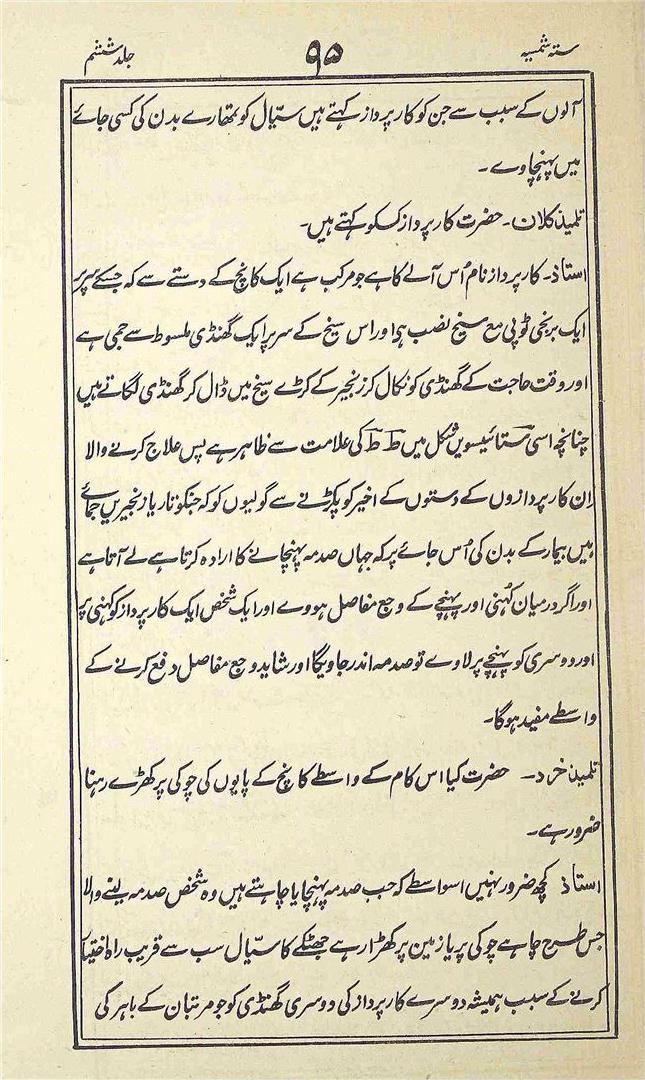 ستہ شمسیہ ۹۵ جلد ششم
آلوں کے سبب سے جن کو کارپرداز کہتے ہیں سیّال کو تمھارے بدن کی کسی جائے
میں پہنچاوے ۔
تلمیذ کلان ۔ حضرت کارپرداز کسکو کہتے ہیں ۔
استاذ ۔ کارپرداز نام اُس آلے کا ہے جو مرکب ہے ایک کانچ کے دستے سے کہ جسکے سرپر
ایک برنجی ٹوپی مع سیخ نصب ہی اور اس سیخ کے سرپر ایک گھنڈی ملسوط سے جمی ہے
اور وقت حاجت کے گھنڈی کو نکال کر زنجیر کے کڑے سیخ میں ڈال کر گھنڈی لگاتے ہیں
چنانچہ اسی ستائیسویں شکل میں ط ط کی علامت سے ظاہر ہے پس علاج کرنے والا
اِن کارپردازوں کے دستوں کے اخیر کو پکڑنے سے گولیوں کو کہ جنکو تار یا زنجیریں جمائے
ہیں بیمار کے بدن کی اُس جائے پر کہ جہاں صدمہ پہنچانے کا ارادہ کرتا ہے لے آتا ہے
اور اگر درمیان کُہنی اور پہنچے کے وجع مفاصل ہووے اور ایک شخص ایک کارپرداز کو کہنی پر
اور دوسری کو پہنچے پر لاوے تو صدمہ اندر جاویگا اور شاید وجع مفاصل دفع کرنے کے
واسطے مفید ہوگا ۔
تلمیذ خرد ۔ حضرت کیا اس کام کے واسطے کانچ کے پایوں کی چوکی پر کھڑے رہنا
ضرور ہے ۔
استاذ کچھ ضرور نہیں اسواسطے کہ جب صدمہ پہنچایا چاہتے ہیں وہ شخص صدمہ لینے والا
جس طرح چاہے چوکی پر یا زمین پر کھڑا رہے جھٹکے کا سیّال سب سے قریب راہ اختیار
کرنے کے سبب ہمیشہ دوسرے کارپرداز کی دوسری گھنڈی کو جو مرتبان کے باہر کی